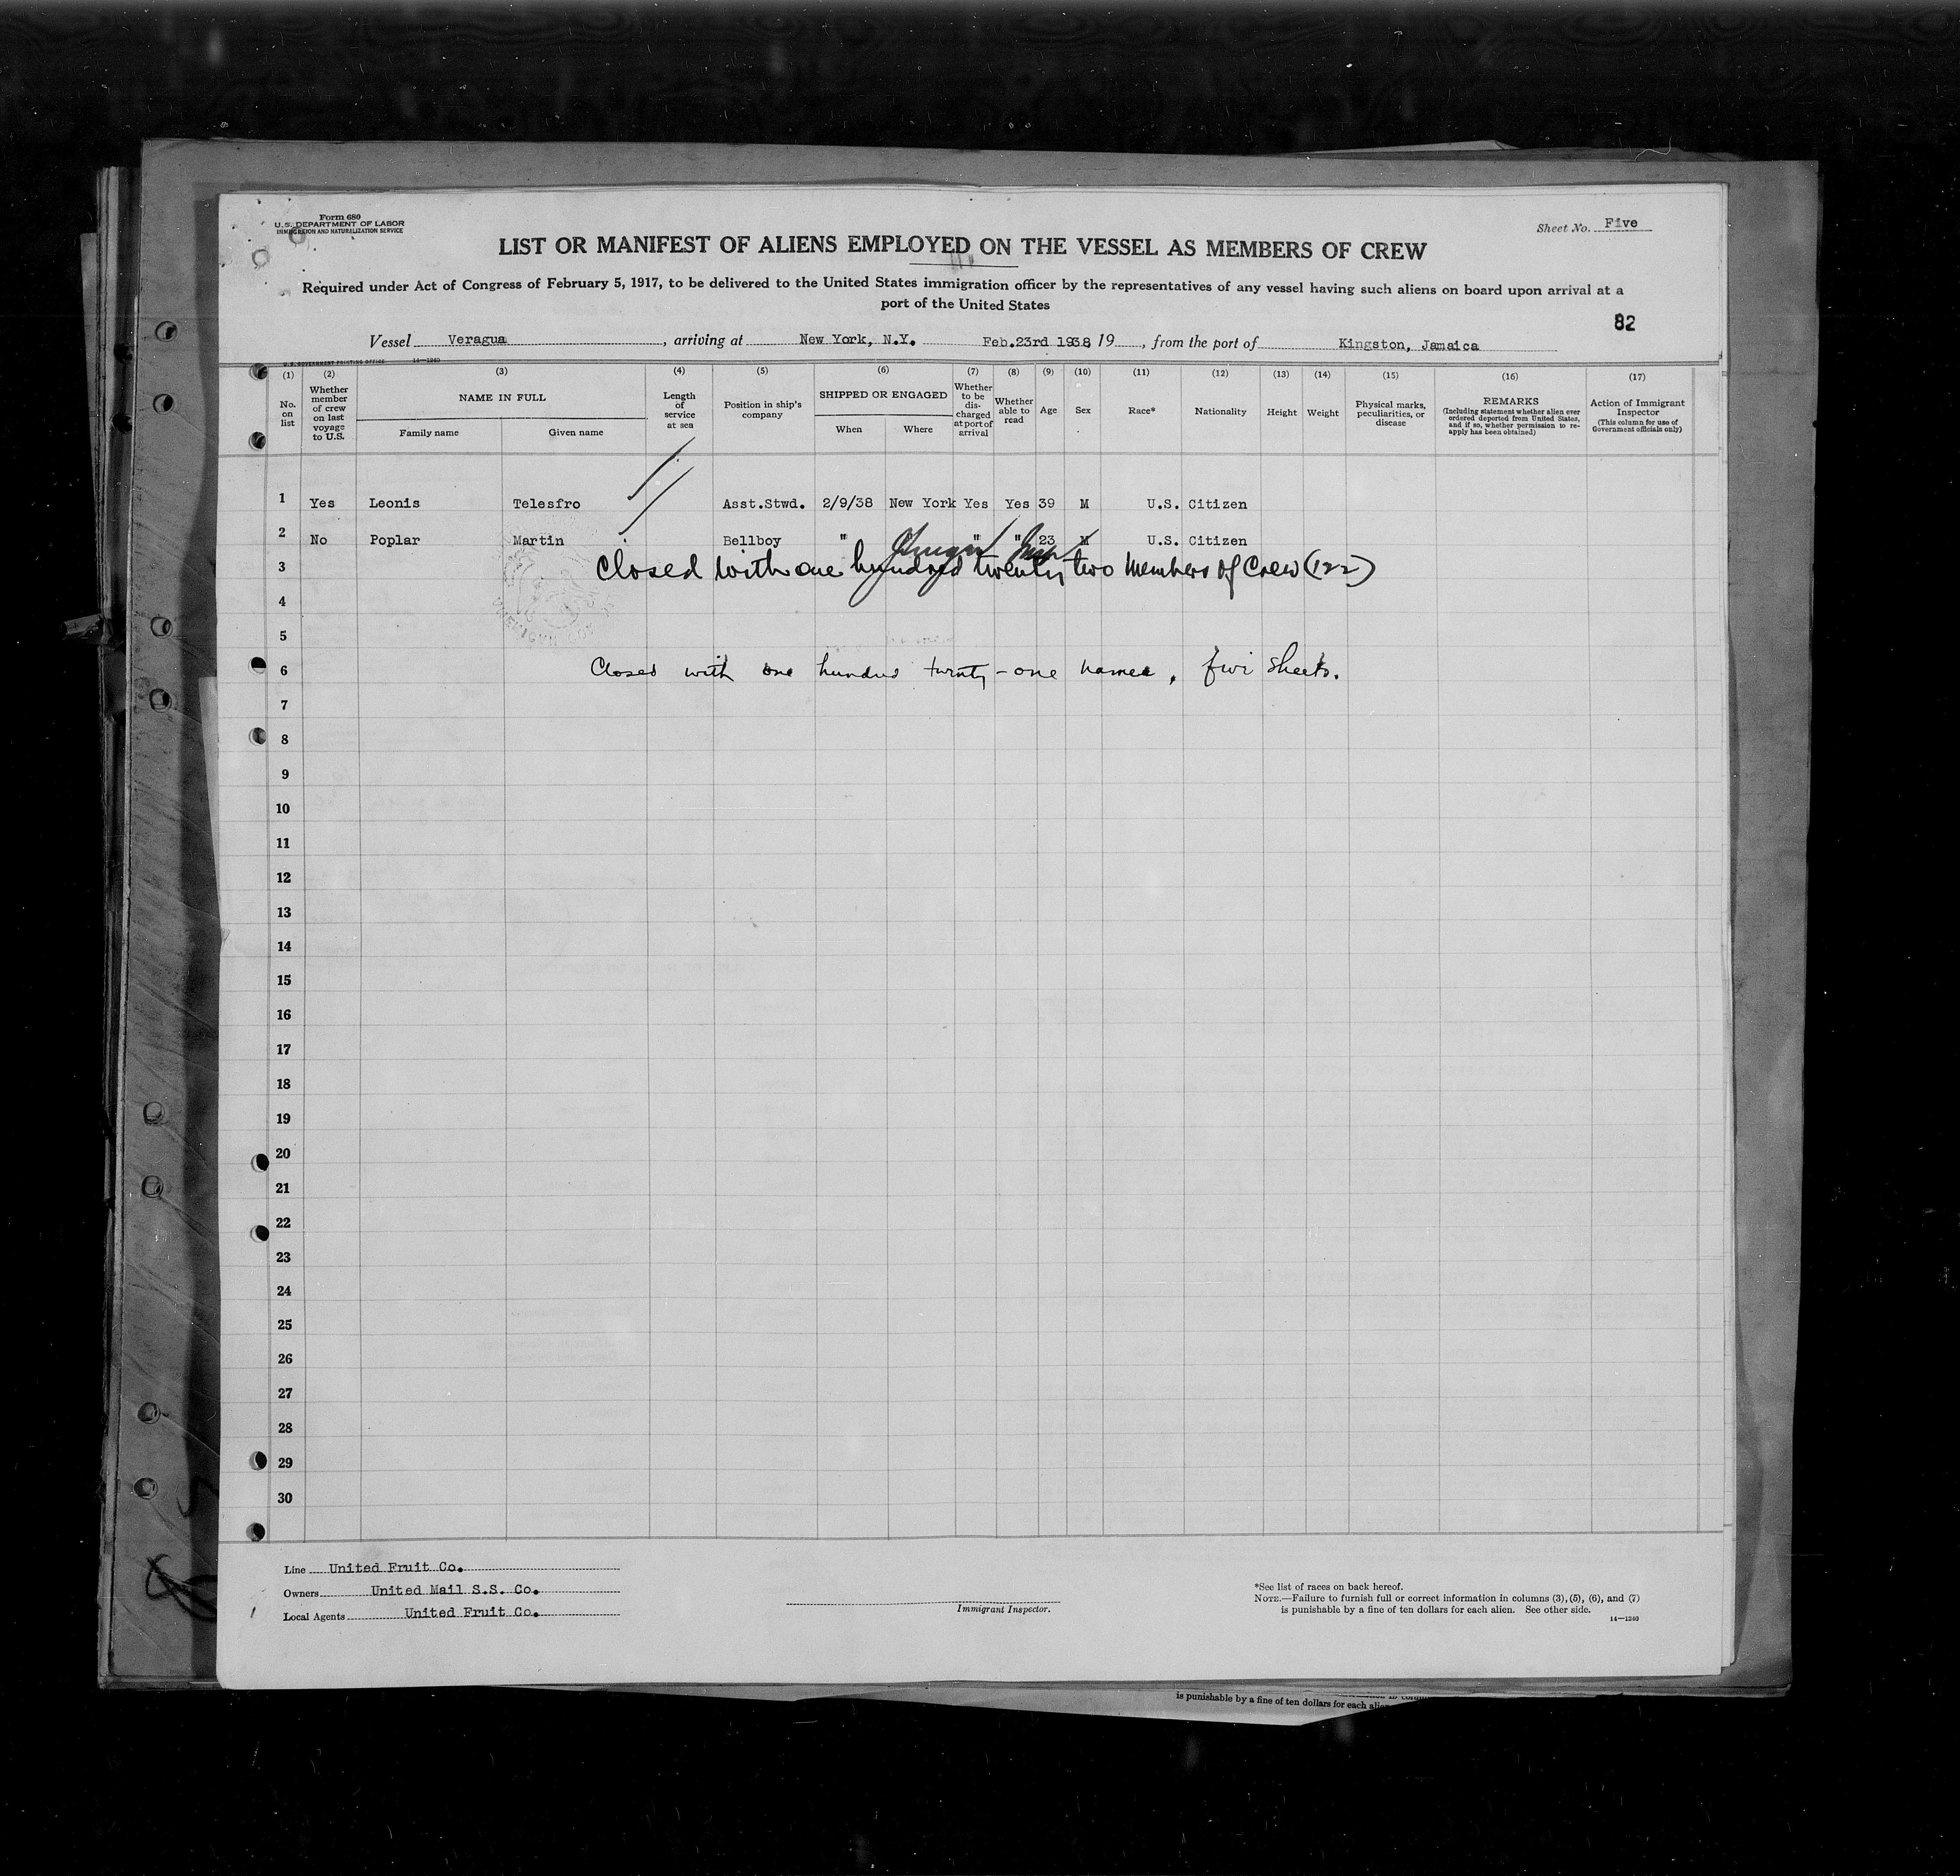 Form 680
U.S. DEPARTMENT OF LABOR
IMMIGRATION AND NATURALIZATION SERVICE
Sheet No. Five
LIST OR MANIFEST OF ALIENS EMPLOYED ON THE VESSEL AS MEMBERS OF CREW
Required under Act of Congress of February 5, 1917, to be delivered to the United States immigration officer by the representatives of any vessel having such aliens on board upon arrival at a
port of the United States
82
Vessel Veragua, arriving at New York, N.Y. Feb.23rd 1938 19, from the port of Kingston, Jamaica
U.S. GOVERNMENT PRINTING OFFICE 14—1240
(1) (2) (3) (4) (5) (6) (7) (8) (9) (10) (11) (12) (13) (14) (15) (16) (17)
No. on list
Whether member of crew on last voyage to U.S.
NAME IN FULL
Family name
Given name
Length of service at sea
Position in ship's company
SHIPPED OR ENGAGED
When
Where
Whether to be discharged at port of arrival
Whether able to read
Age
Sex
Race*
Nationality
Height
Weight
Physical marks, peculiarities, or disease
REMARKS
(Including statement whether alien ever ordered deported from United States, and if so, whether permission to reapply has been obtained)
Action of Immigrant Inspector
(This column for use of Government officials only)
1 Yes Leonis Telesfro Asst.Stwd. 2/9/38 New York Yes Yes 39 M U.S. Citizen
2 No Poplar Martin Bellboy " " " 23 M U.S. Citizen
3 Closed with one hundred twenty two Members of Crew (122)
4
5
6 Closed with one hundred twenty-one names, five sheets.
7
8
9
10
11
12
13
14
15
16
17
18
19
20
21
22
23
24
25
26
27
28
29
30
Line United Fruit Co.
Owners United Mail S.S. Co.
Local Agents United Fruit Co.
Immigrant Inspector.
*See list of races on back hereof.
NOTE.—Failure to furnish full or correct information in columns (3), (5), (6), and (7)
is punishable by a fine of ten dollars for each alien. See other side.
14—1240
is punishable by a fine of ten dollars for each alien